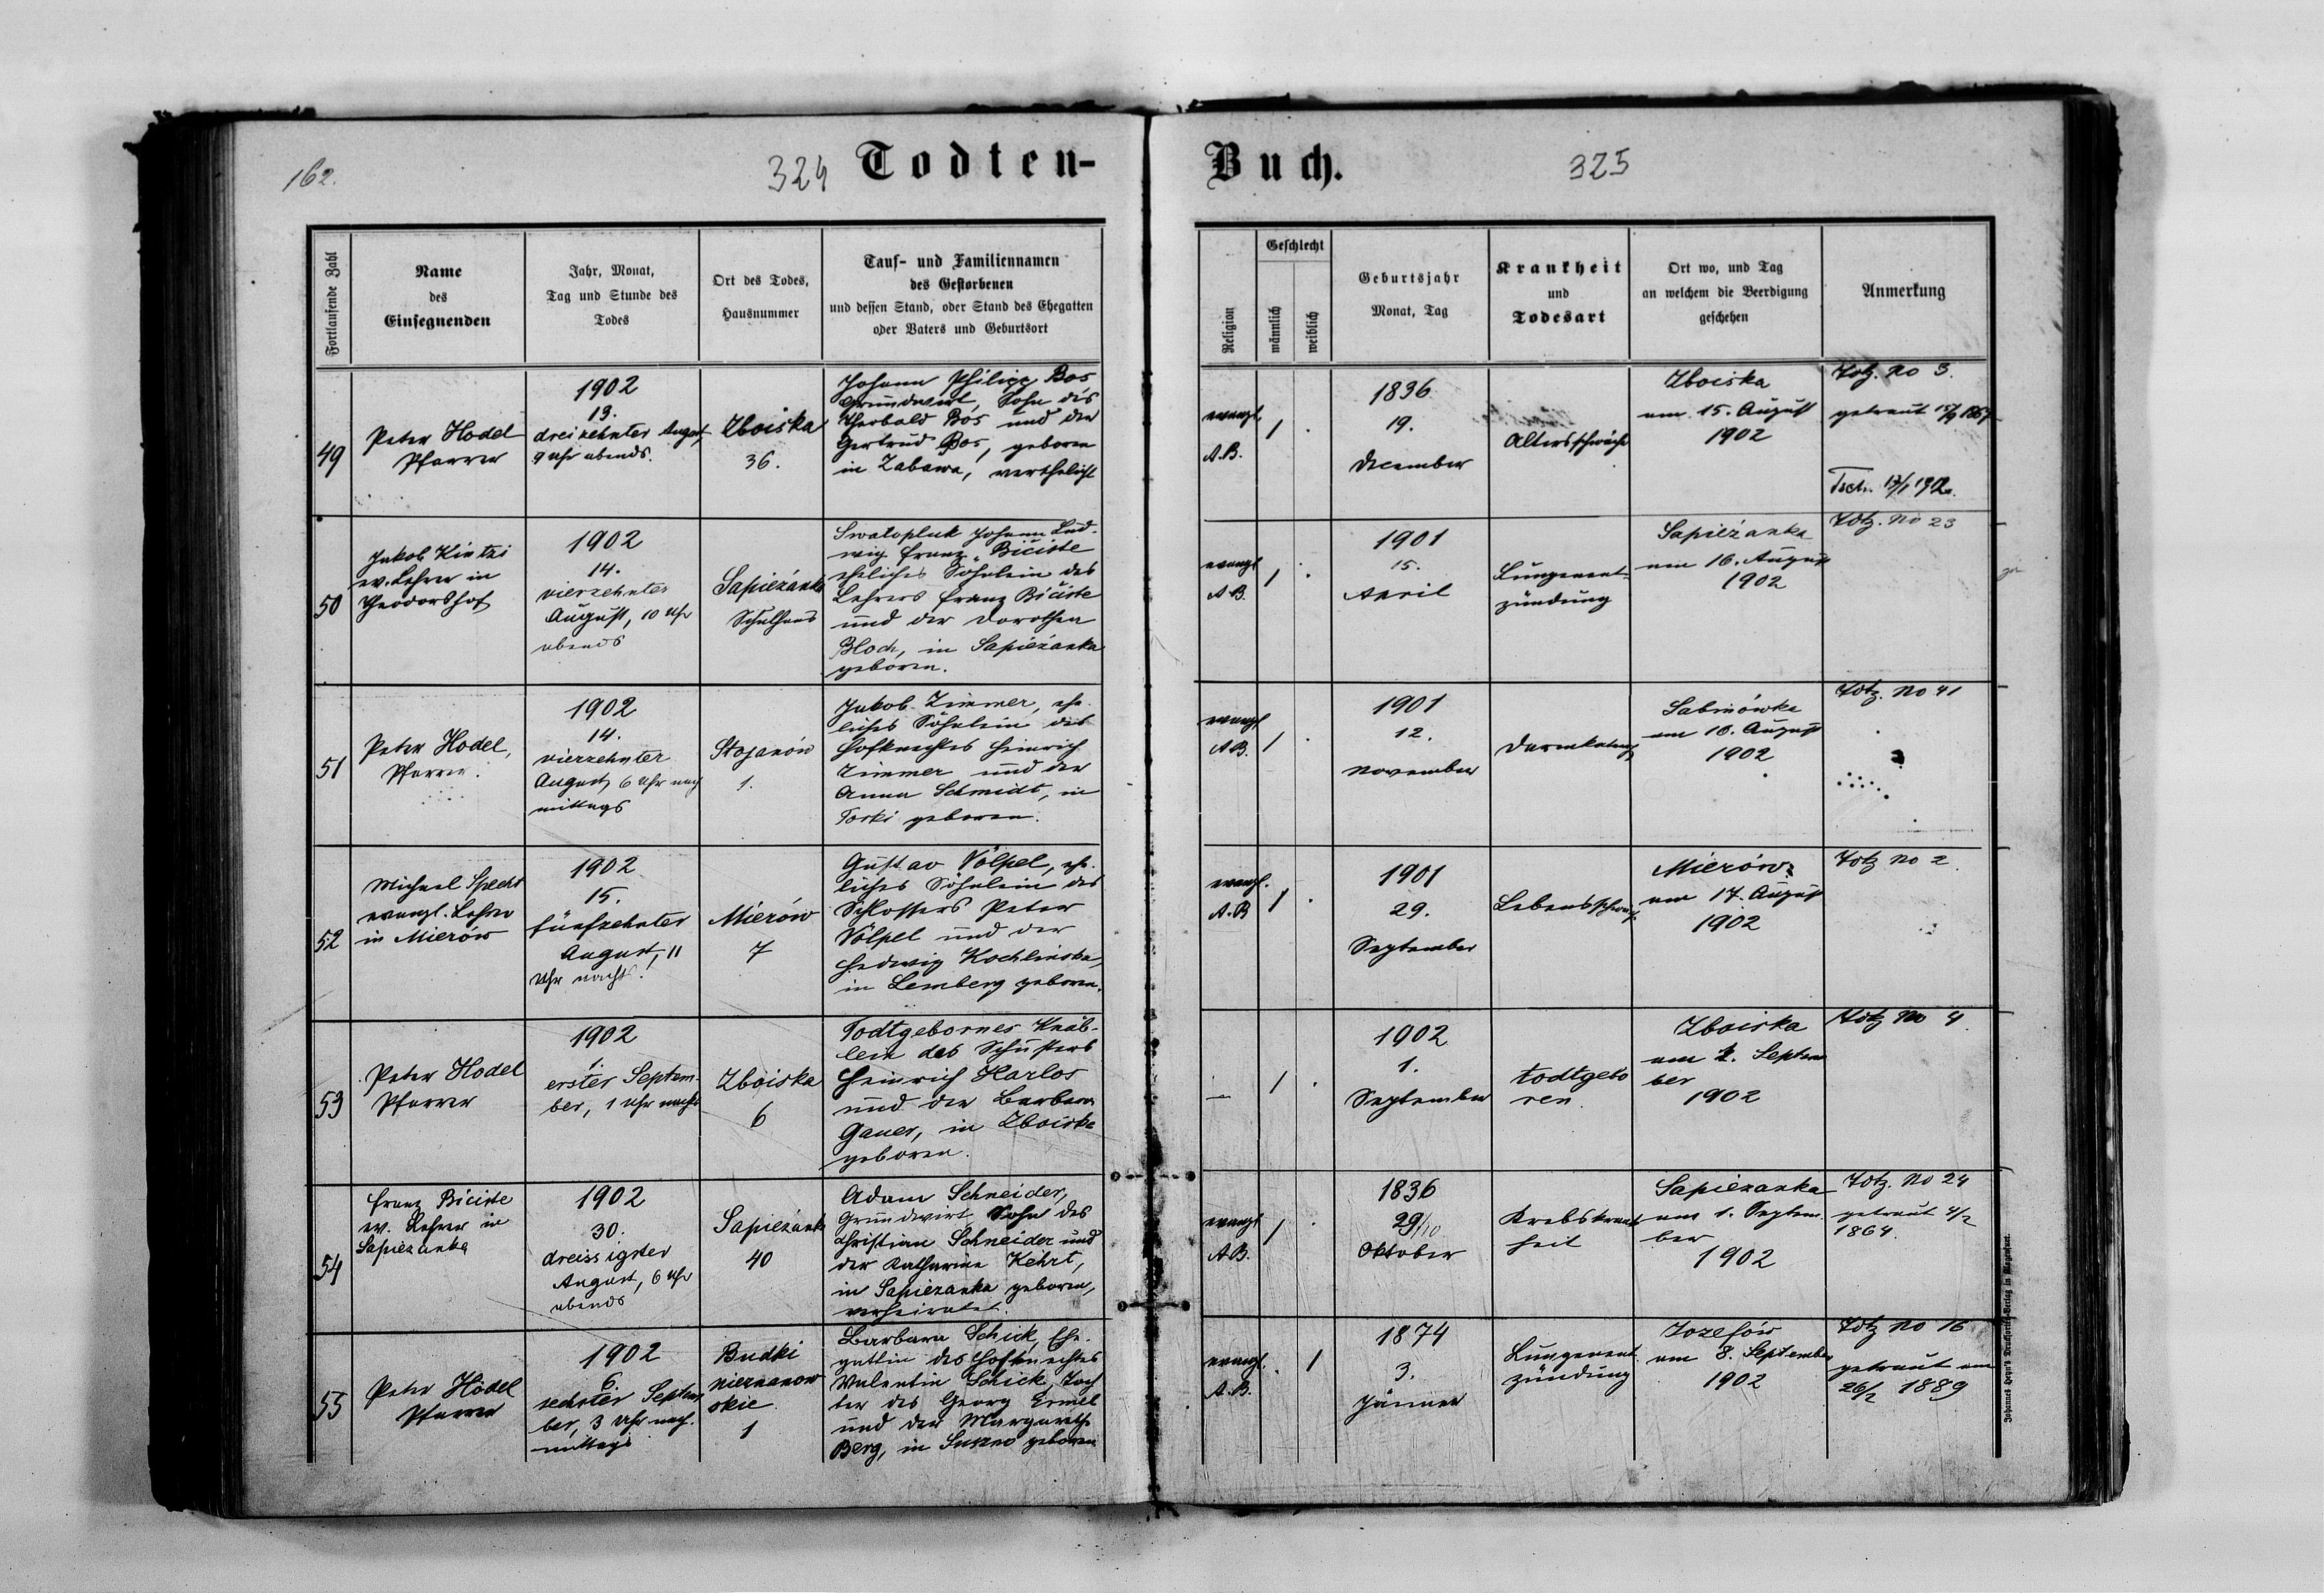 162.
324 Todten-
Buch. 325
Fortlaufende Zahl
Name
des
Einsegnenden
Jahr, Monat,
Tag und Stunde des
Todes
Ort des Todes,
Hausnummer
Tauf- und Familiennamen
des Gestorbenen
und dessen Stand, oder Stand des Ehegatten
oder Vaters und Geburtsort
Religion
Geschlecht
männlich
weiblich
Geburtsjahr
Monat, Tag
Krankheit
und
Todesart
Ort wo, und Tag
an welchem die Beerdigung
geschehen
Anmerkung
49
Peter Hodel
Pfarrer
1902
13.
dreizehnter August
9 Uhr abends.
Zboiska
36.
Johann Philipp Bos
Grundwirt, Sohn des
Theobald Bos und der
Gertrud Bos, geboren
in Zabawa, verehelicht
evangl.
A.B.
1
.
1836
19.
December
Altersschwäche
Zboiska
am 15. August
1902
Totz. No 3.
getraut
Tsch. 13/1 1902.
50
Jakob Kintzi
ev. Lehrer in
Theodorshof
1902
14.
vierzehnter
August, 10 Uhr
abends
Sapiezanka
Schulhaus
Swatopluk Johann Lud-
wig Franz Biciste
eheliches Söhnlein des
Lehrers Franz Biciste
und der Dorothea
Bloch, in Sapiezanka
geboren.
evangl
A.B.
1
.
1901
15.
April
Lungenent-
zündung
Sapiezanka
am 16. August
1902
Totz. No 23
51
Peter Hodel,
Pfarrer.
1902
14.
vierzehnter
August, 6 Uhr nach
mittags
Stojanów
1.
Jakob Zimmer, ehe-
liches Söhnlein des
Hofknechtes Heinrich
Zimmer und der
Anna Schmidt, in
Torki geboren.
evangl
A.B.
1
.
1901
12.
November
Darmkatarrh
Sabinówka
am 16. August
1902
Totz. No 41
52
Michael Specht
evangl. Lehrer
in Mierów
1902
15.
fünfzehnter
August, 11
Uhr nachts.
Mierów
7
Gustav Völpel, ehe-
liches Söhnlein des
Schlossers Peter
Völpel und der
Hedwig Kochlinska,
in Lemberg geboren.
evangl.
A.B
1
.
1901
29.
September
Lebensschwäche
Mierów
am 17. August
1902
Totz No 2
53
Peter Hodel
Pfarrer
1902
1.
erster Septem-
ber, 1 Uhr nachts
Zboiska
6
Todtgebornes Knäb-
lein des Schusters
Heinrich Harlos
und der Barbara
Gauer, in Zboiska
geboren.
—
1
.
1902
1.
September
todtgebo
ren.
Zboiska
am 2. Septem
ber
1902
Totz No 4
54
Franz Biciste
ev. Lehrer in
Sapiezanka
1902
30.
dreissigster
August, 6 Uhr
abends
Sapiezanka
40
Adam Schneider,
Grundwirt, Sohn des
Christian Schneider und
der Katharina Kehrt,
in Sapiezanka geboren,
verheiratet.
evangl
A.B.
1
.
1836
29/10
Oktober
Krebskrank
heit
Sapiezanka
am 1. Septem-
ber
1902
Totz. No 24
getraut 4/2
1864.
55
Peter Hodel
Pfarrer
1902
6.
sechster Septem
ber, 3 Uhr nach-
mittags
Budki
nieznanow
skie
1
Barbara Schick, Ehe-
gattin des Hofknechtes
Valentin Schick, Toch
ter des Georg Ermel
und der Margarethe
Berg, in Suszno geboren
evangl.
A.B.
.
1
1874
3.
Jänner
Lungenent-
zündung
Jozefów
am 8. September
1902
Totz No 16
getraut am
26/2 1889